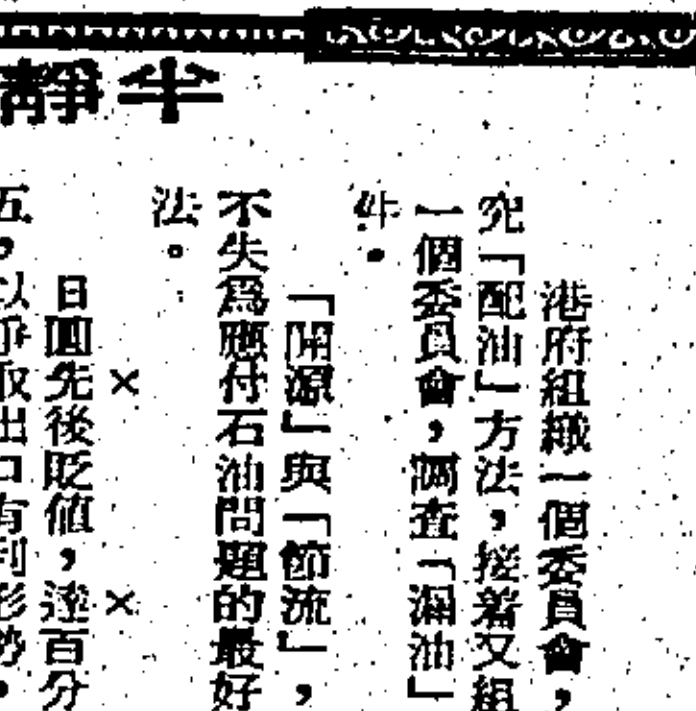 半靜
港府組織一個委員會，
究「配油」方法，接着又組
一個委員會，調查「漏油」
件。
「開源」與「節流」，
不失爲應付石油問題的最好
法。
× ×
日圓先後貶值，達百分
五，以爭取出口有利形勢，